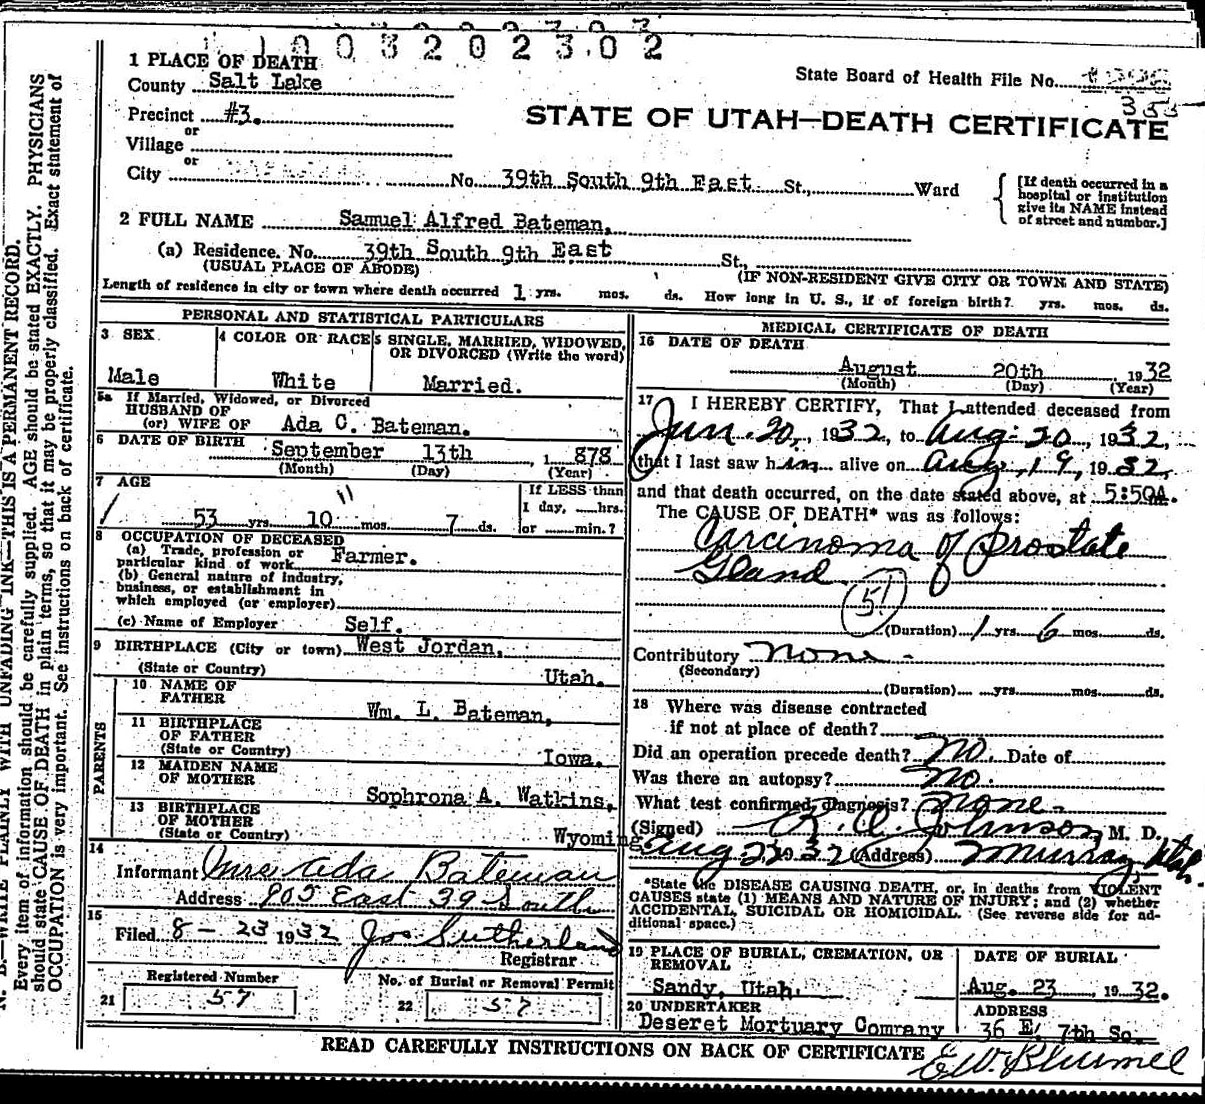 1003202302
1 PLACE OF DEATH
County Salt Lake
State Board of Health File No.
355
Precinct #3.
STATE OF UTAH—DEATH CERTIFICATE
or
Village
or
City No. 39th South 9th East St., Ward
[If death occurred in a
hospital or institution
give its NAME instead
of street and number.]
2 FULL NAME Samuel Alfred Bateman,
(a) Residence. No. 39th South 9th East St.,
(USUAL PLACE OF ABODE) (IF NON-RESIDENT GIVE CITY OR TOWN AND STATE)
Length of residence in city or town where death occurred 1 yrs. mos. ds. How long in U. S., if of foreign birth? yrs. mos. ds.
PERSONAL AND STATISTICAL PARTICULARS
3 SEX
Male
4 COLOR OR RACE
White
5 SINGLE, MARRIED, WIDOWED,
OR DIVORCED (Write the word)
Married.
5a If Married, Widowed, or Divorced
HUSBAND OF
(or) WIFE OF Ada C. Bateman.
6 DATE OF BIRTH
September 13th, 1 878
(Month) (Day) (Year)
7 AGE
11
53 yrs. 10 mos. 7 ds.
If LESS than
1 day, hrs.
or min.?
8 OCCUPATION OF DECEASED
(a) Trade, profession or
particular kind of work Farmer.
(b) General nature of industry,
business, or establishment in
which employed (or employer)
(c) Name of Employer Self.
9 BIRTHPLACE (City or town) West Jordan,
(State or Country) Utah.
PARENTS
10 NAME OF
FATHER Wm. L. Bateman,
11 BIRTHPLACE
OF FATHER
(State or Country) Iowa.
12 MAIDEN NAME
OF MOTHER
Sophrona A. Watkins,
13 BIRTHPLACE
OF MOTHER
(State or Country) Wyoming
14
Informant Mrs Ada Bateman
Address 905 East 39 South
15
Filed 8 - 23 1932 Jos Sutherland
Registrar
Registered Number
21 57
No. of Burial or Removal Permit
22 57
MEDICAL CERTIFICATE OF DEATH
16 DATE OF DEATH
August 20th, 1932
(Month) (Day) (Year)
17 I HEREBY CERTIFY, That I attended deceased from
Jun. 20, 1932, to Aug. 20, 1932,
that I last saw him alive on Aug, 19, 1932,
and that death occurred, on the date stated above, at 5:50A.
The CAUSE OF DEATH* was as follows:
Carcinoma of Prostate
Gland
51
(Duration) 1 yrs. 6 mos. ds.
Contributory None -
(Secondary)
(Duration) yrs. mos. ds.
18 Where was disease contracted
if not at place of death?
Did an operation precede death? No. Date of
Was there an autopsy? No.
What test confirmed Diagnosis? None -
(Signed) Johnson, M. D.
Aug 22 1932 (Address) Murray, Utah.
*State the DISEASE CAUSING DEATH, or, in deaths from VIOLENT
CAUSES state (1) MEANS AND NATURE OF INJURY; and (2) whether
ACCIDENTAL, SUICIDAL OR HOMICIDAL. (See reverse side for ad-
ditional space.)
19 PLACE OF BURIAL, CREMATION, OR
REMOVAL
Sandy, Utah.
DATE OF BURIAL
Aug. 23, 1932.
20 UNDERTAKER
Deseret Mortuary Company
ADDRESS
36 E. 7th So.
READ CAREFULLY INSTRUCTIONS ON BACK OF CERTIFICATE
E.W. Blumel
N. B.—WRITE PLAINLY WITH UNFADING INK—THIS IS A PERMANENT RECORD.
Every item of information should be carefully supplied. AGE should be stated EXACTLY. PHYSICIANS
should state CAUSE OF DEATH in plain terms, so that it may be properly classified. Exact statement of
OCCUPATION is very important. See instructions on back of certificate.